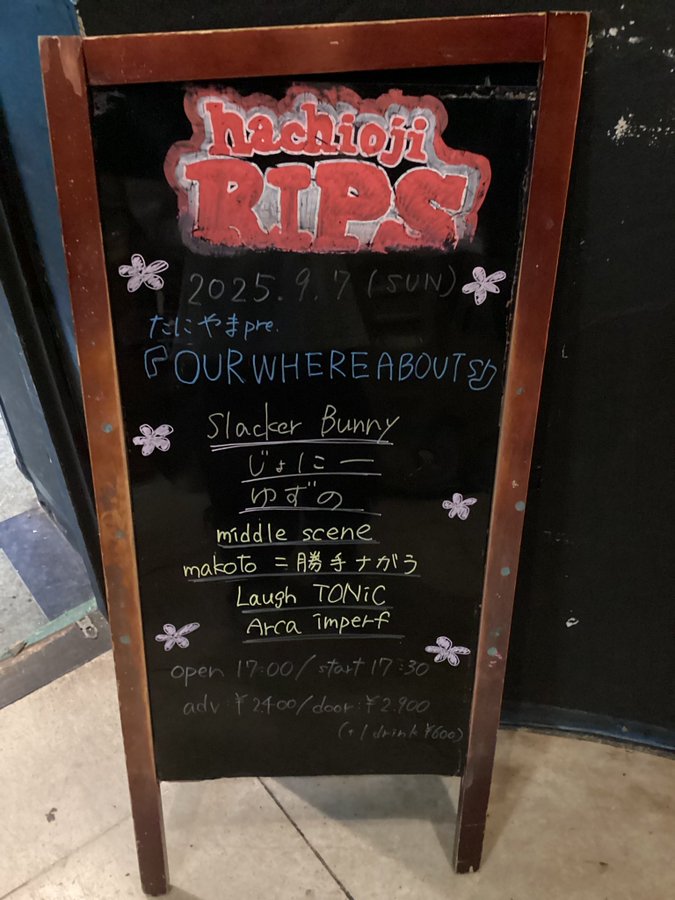 hachioji
RIPS
2025.9.7 (SUN)
たにやまpre.
『OUR WHEREABOUTS』
Slacker Bunny
じょにー
ゆずの
middle scene
makoto=勝手ナがう
Laugh TONiC
Arca imperf
open 17:00/start 17:30
adv:¥2.400/door:¥2.900
(+1drink ¥600)